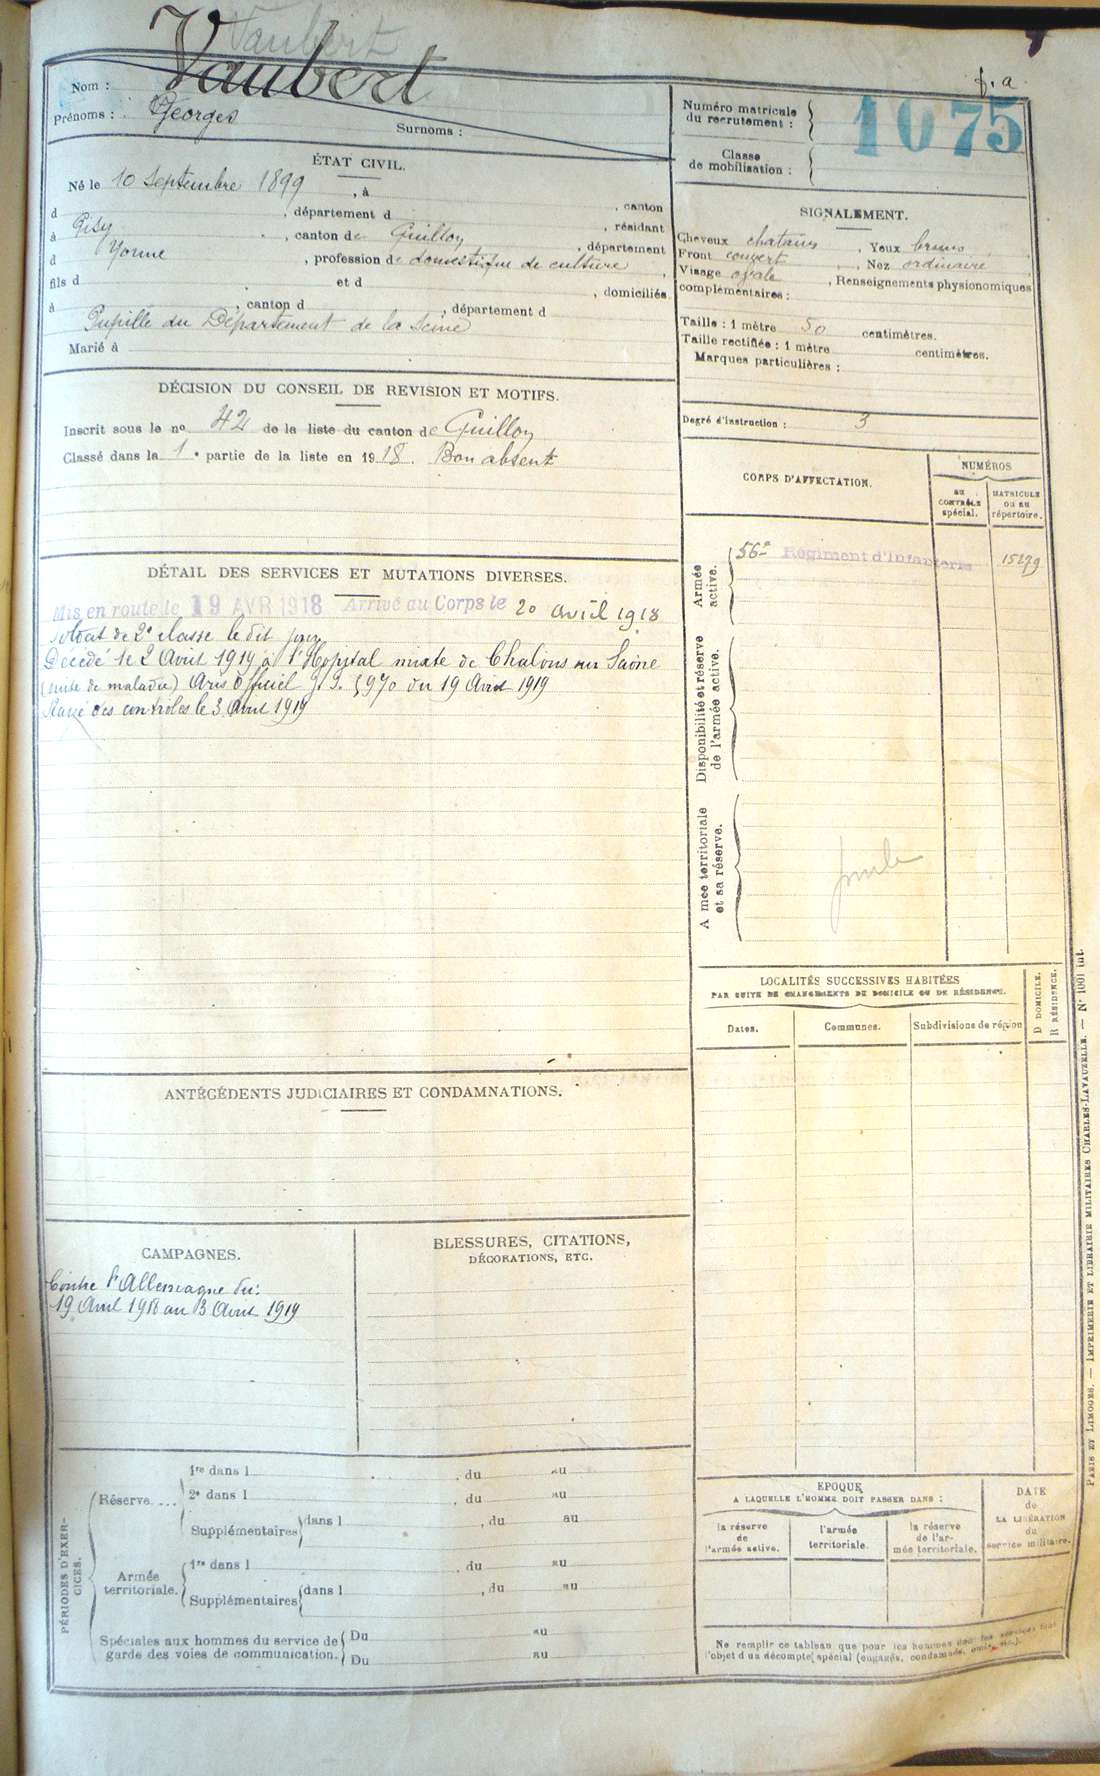 Vaubert
f. a
Nom : Vaubert
Prénoms : Georges
Surnoms :
Numéro matricule
du recrutement :
1075
Classe
de mobilisation :
ÉTAT CIVIL.
Né le 10 Septembre 1899 , à
d , département d , canton
à Pisy , canton de Guillon , résidant
d Yonne , profession de domestique de culture , département
fils d et d , domiciliés
à , canton d , département d
Pupille du Département de la Seine
Marié à
SIGNALEMENT.
Cheveux chatains , Yeux bruns
Front couvert , Nez ordinaire
Visage ovale , Renseignements physionomiques
complémentaires :
Taille : 1 mètre 50 centimètres.
Taille rectifiée : 1 mètre centimètres.
Marques particulières :
Degré d'instruction : 3
DÉCISION DU CONSEIL DE REVISION ET MOTIFS.
Inscrit sous le no 42 de la liste du canton de Guillon
Classé dans la 1e partie de la liste en 1918. Bon absent
CORPS D'AFFECTATION.
NUMÉROS
AU
CONTRÔLE
spécial.
MATRICULE
OU AU
répertoire.
Armée
active.
56e Régiment d'Infanterie 15279
Disponibilité et réserve
de l'armée active.
A mée territoriale
et sa réserve.
DÉTAIL DES SERVICES ET MUTATIONS DIVERSES.
Mis en route le 19 AVR 1918 Arrivé au Corps le 20 avril 1918
soldat de 2e classe le dit jour
Décédé le 2 Avril 1919 à l'Hopital mixte de Chalons sur Saône
(suite de maladie) Avis Officiel 5970 du 19 Avril 1919
Rayé des contrôles le 3 Avril 1919
LOCALITÉS SUCCESSIVES HABITÉES
PAR SUITE DE CHANGEMENTS DE DOMICILE OU DE RÉSIDENCE.
Dates.
Communes.
Subdivisions de région
D DOMICILE.
R RÉSIDENCE.
ANTÉCÉDENTS JUDICIAIRES ET CONDAMNATIONS.
CAMPAGNES.
Contre l'Allemagne du:
19 Avril 1918 au 3 Avril 1919
BLESSURES, CITATIONS,
DÉCORATIONS, ETC.
PÉRIODES D'EXER-
CICES.
Réserve....
1re dans l , du au
2e dans l , du au
Supplémentaires dans l , du au
Armée
territoriale.
1re dans l , du au
Supplémentaires dans l , du au
Spéciales aux hommes du service de
garde des voies de communication.
Du au
Du au
EPOQUE
A LAQUELLE L'HOMME DOIT PASSER DANS :
la réserve
de
l'armée active.
l'armée
territoriale.
la réserve
de l'ar-
mée territoriale.
DATE
de
LA LIBÉRATION
du
service militaire.
Ne remplir ce tableau que pour les hommes dont les services font
l'objet d'un décompte spécial (engagés, condamnés, omis, etc.).
PARIS ET LIMOGES. — IMPRIMERIE ET LIBRAIRIE MILITAIRES CHARLES-LAVAUZELLE. — N° 1001 int.